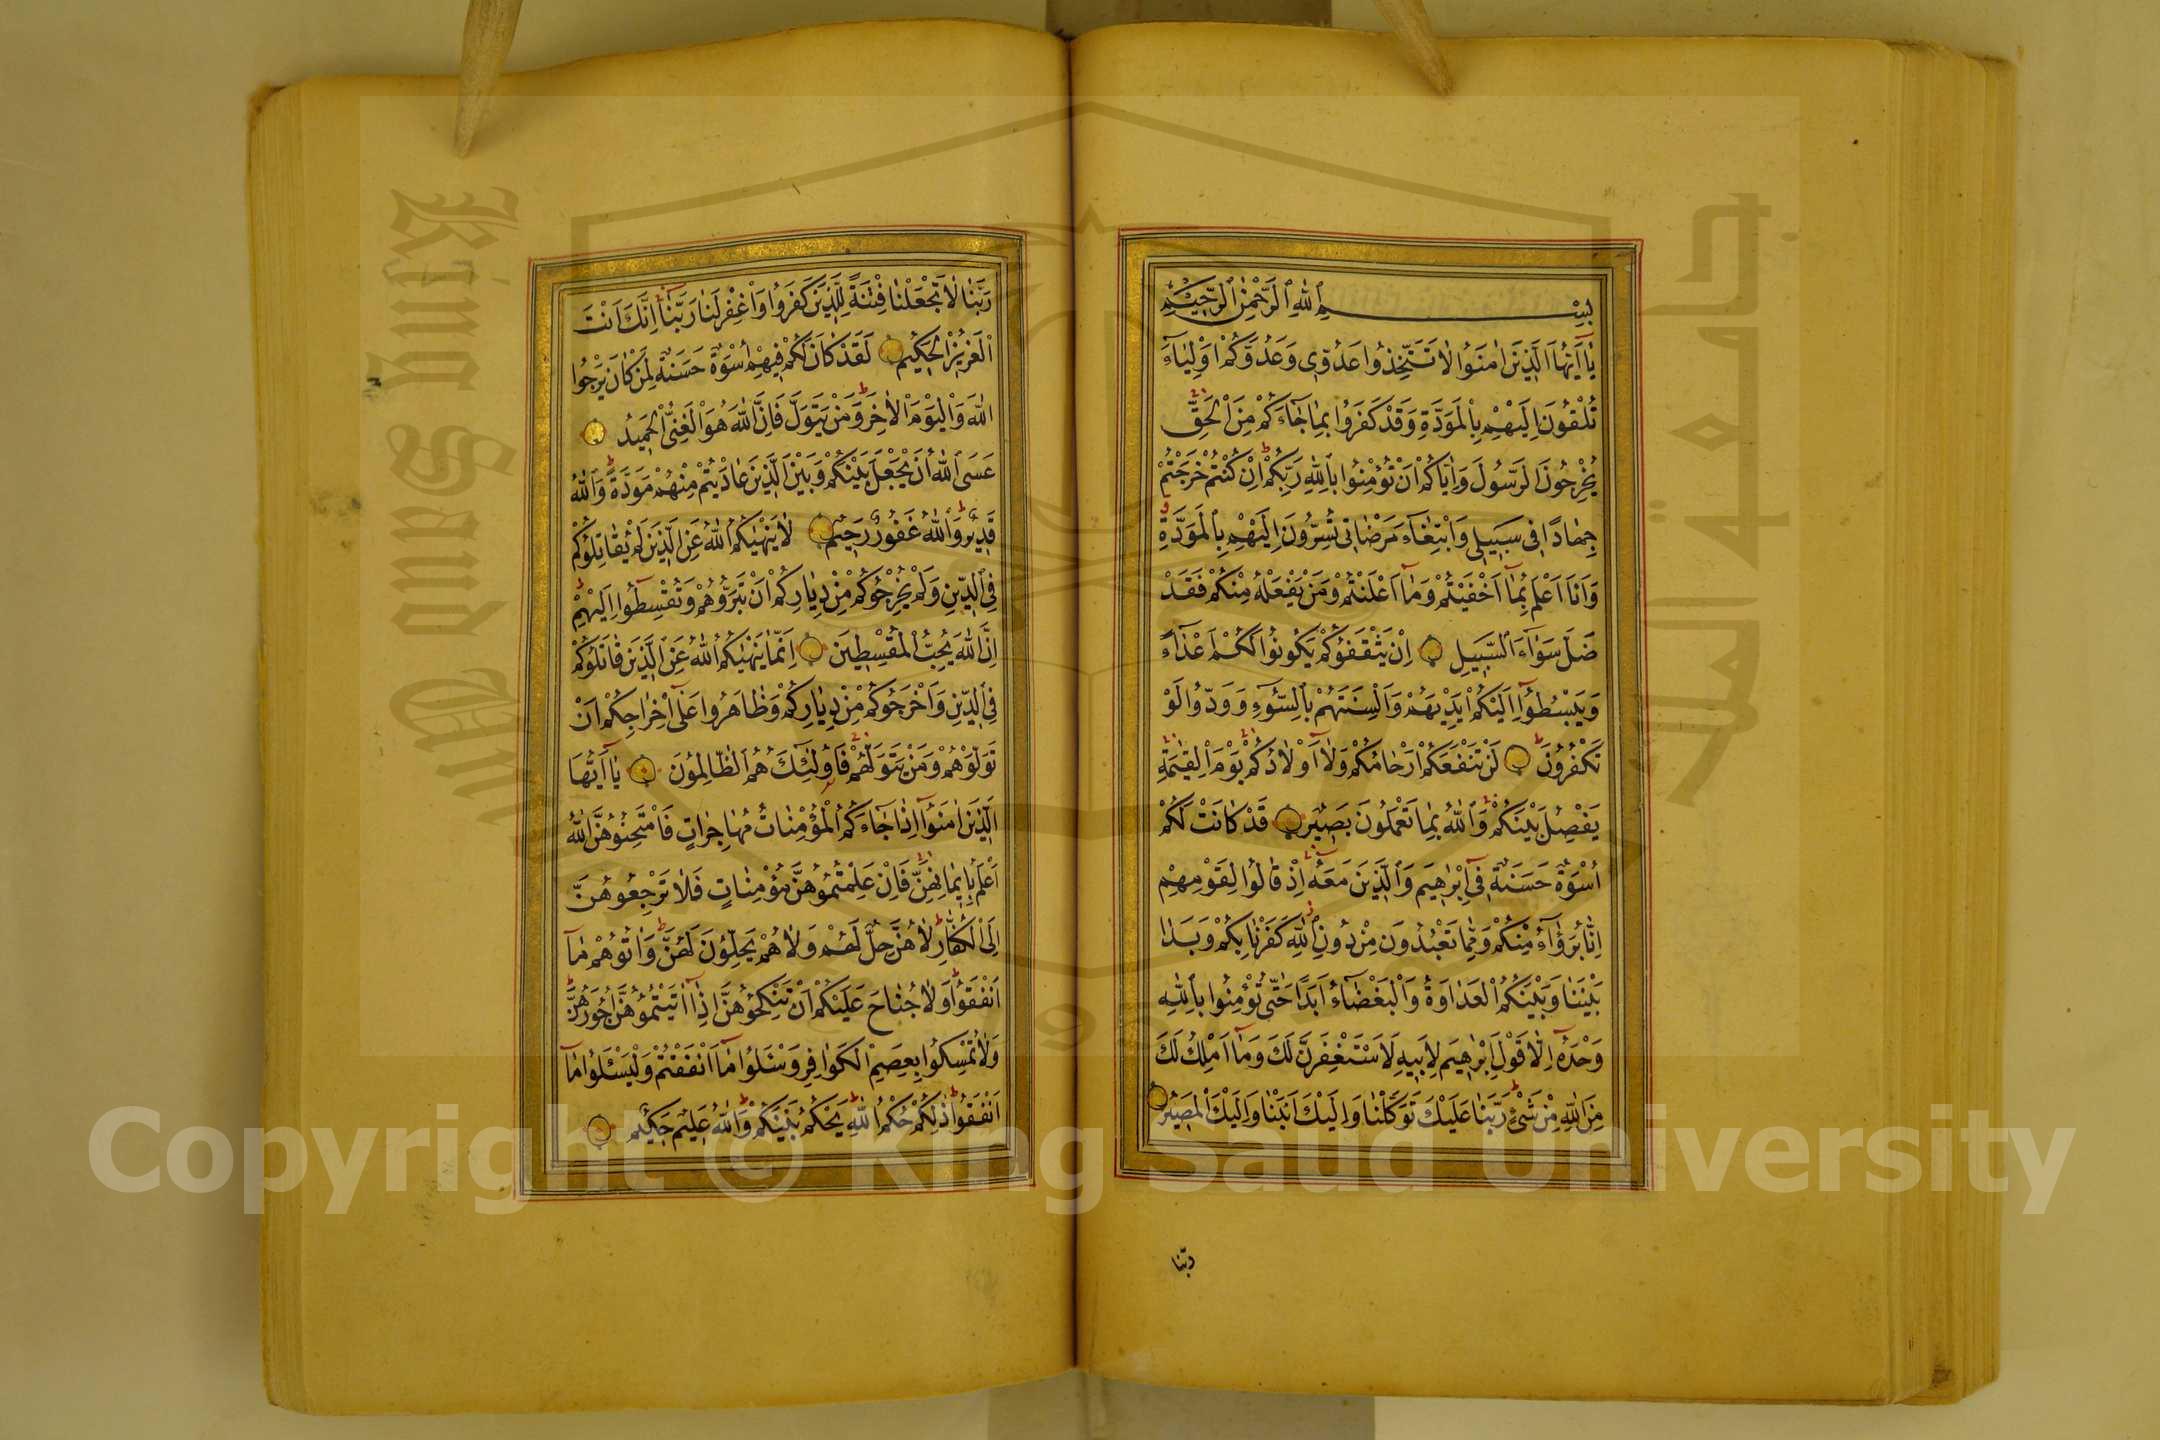 بِسْمِ اللهِ الرَّحْمٰنِ الرَّحِيمِ
يَٓا اَيُّهَا الَّذِينَ اٰمَنُوا لَا تَتَّخِذُوا عَدُوِّي وَعَدُوَّكُمْ اَوْلِيَٓاءَ
تُلْقُونَ اِلَيْهِمْ بِالْمَوَدَّةِ وَقَدْ كَفَرُوا بِمَا جَٓاءَكُمْ مِنَ الْحَقِّ
يُخْرِجُونَ الرَّسُولَ وَاِيَّاكُمْ اَنْ تُؤْمِنُوا بِاللهِ رَبِّكُمْ اِنْ كُنْتُمْ خَرَجْتُمْ
جِهَادًا فِي سَبِيلِي وَابْتِغَٓاءَ مَرْضَاتِي تُسِرُّونَ اِلَيْهِمْ بِالْمَوَدَّةِ
وَاَنَا اَعْلَمُ بِمَٓا اَخْفَيْتُمْ وَمَٓا اَعْلَنْتُمْ وَمَنْ يَفْعَلْهُ مِنْكُمْ فَقَدْ
ضَلَّ سَوَٓاءَ السَّبِيلِ اِنْ يَثْقَفُوكُمْ يَكُونُوا لَكُمْ اَعْدَٓاءً
وَيَبْسُطُٓوا اِلَيْكُمْ اَيْدِيَهُمْ وَاَلْسِنَتَهُمْ بِالسُّٓوءِ وَوَدُّوا لَوْ
تَكْفُرُونَ لَنْ تَنْفَعَكُمْ اَرْحَامُكُمْ وَلَٓا اَوْلَادُكُمْ يَوْمَ الْقِيٰمَةِ
يَفْصِلُ بَيْنَكُمْ وَاللهُ بِمَا تَعْمَلُونَ بَصِيرٌ قَدْ كَانَتْ لَكُمْ
اُسْوَةٌ حَسَنَةٌ فِٓي اِبْرٰهِيمَ وَالَّذِينَ مَعَهُ اِذْ قَالُوا لِقَوْمِهِمْ
اِنَّا بُرَءٰٓؤُا مِنْكُمْ وَمِمَّا تَعْبُدُونَ مِنْ دُونِ اللهِ كَفَرْنَا بِكُمْ وَبَدَا
بَيْنَنَا وَبَيْنَكُمُ الْعَدَاوَةُ وَالْبَغْضَٓاءُ اَبَدًا حَتّٰى تُؤْمِنُوا بِاللهِ
وَحْدَهُٓ اِلَّا قَوْلَ اِبْرٰهِيمَ لِاَبِيهِ لَاَسْتَغْفِرَنَّ لَكَ وَمَٓا اَمْلِكُ لَكَ
مِنَ اللهِ مِنْ شَيْءٍ رَبَّنَا عَلَيْكَ تَوَكَّلْنَا وَاِلَيْكَ اَنَبْنَا وَاِلَيْكَ الْمَصِيرُ
ربنا
رَبَّنَا لَا تَجْعَلْنَا فِتْنَةً لِلَّذِينَ كَفَرُوا وَاغْفِرْ لَنَا رَبَّنَٓا اِنَّكَ اَنْتَ
الْعَزِيزُ الْحَكِيمُ لَقَدْ كَانَ لَكُمْ فِيهِمْ اُسْوَةٌ حَسَنَةٌ لِمَنْ كَانَ يَرْجُوا
اللهَ وَالْيَوْمَ الْاٰخِرَ وَمَنْ يَتَوَلَّ فَاِنَّ اللهَ هُوَ الْغَنِيُّ الْحَمِيدُ
عَسَى اللهُ اَنْ يَجْعَلَ بَيْنَكُمْ وَبَيْنَ الَّذِينَ عَادَيْتُمْ مِنْهُمْ مَوَدَّةً وَاللهُ
قَدِيرٌ وَاللهُ غَفُورٌ رَحِيمٌ لَا يَنْهٰيكُمُ اللهُ عَنِ الَّذِينَ لَمْ يُقَاتِلُوكُمْ
فِي الدِّينِ وَلَمْ يُخْرِجُوكُمْ مِنْ دِيَارِكُمْ اَنْ تَبَرُّوهُمْ وَتُقْسِطُٓوا اِلَيْهِمْ
اِنَّ اللهَ يُحِبُّ الْمُقْسِطِينَ اِنَّمَا يَنْهٰيكُمُ اللهُ عَنِ الَّذِينَ قَاتَلُوكُمْ
فِي الدِّينِ وَاَخْرَجُوكُمْ مِنْ دِيَارِكُمْ وَظَاهَرُوا عَلٰٓى اِخْرَاجِكُمْ اَنْ
تَوَلَّوْهُمْ وَمَنْ يَتَوَلَّهُمْ فَاُولٰٓئِكَ هُمُ الظَّالِمُونَ يَٓا اَيُّهَا
الَّذِينَ اٰمَنُٓوا اِذَا جَٓاءَكُمُ الْمُؤْمِنَاتُ مُهَاجِرَاتٍ فَامْتَحِنُوهُنَّ اللهُ
اَعْلَمُ بِاِيمَانِهِنَّ فَاِنْ عَلِمْتُمُوهُنَّ مُؤْمِنَاتٍ فَلَا تَرْجِعُوهُنَّ
اِلَى الْكُفَّارِ لَا هُنَّ حِلٌّ لَهُمْ وَلَا هُمْ يَحِلُّونَ لَهُنَّ وَاٰتُوهُمْ مَٓا
اَنْفَقُوا وَلَا جُنَاحَ عَلَيْكُمْ اَنْ تَنْكِحُوهُنَّ اِذَٓا اٰتَيْتُمُوهُنَّ اُجُورَهُنَّ
وَلَا تُمْسِكُوا بِعِصَمِ الْكَوَافِرِ وَسْئَلُوا مَٓا اَنْفَقْتُمْ وَلْيَسْئَلُوا مَٓا
اَنْفَقُوا ذٰلِكُمْ حُكْمُ اللهِ يَحْكُمُ بَيْنَكُمْ وَاللهُ عَلِيمٌ حَكِيمٌ
Copyright © King Saud University